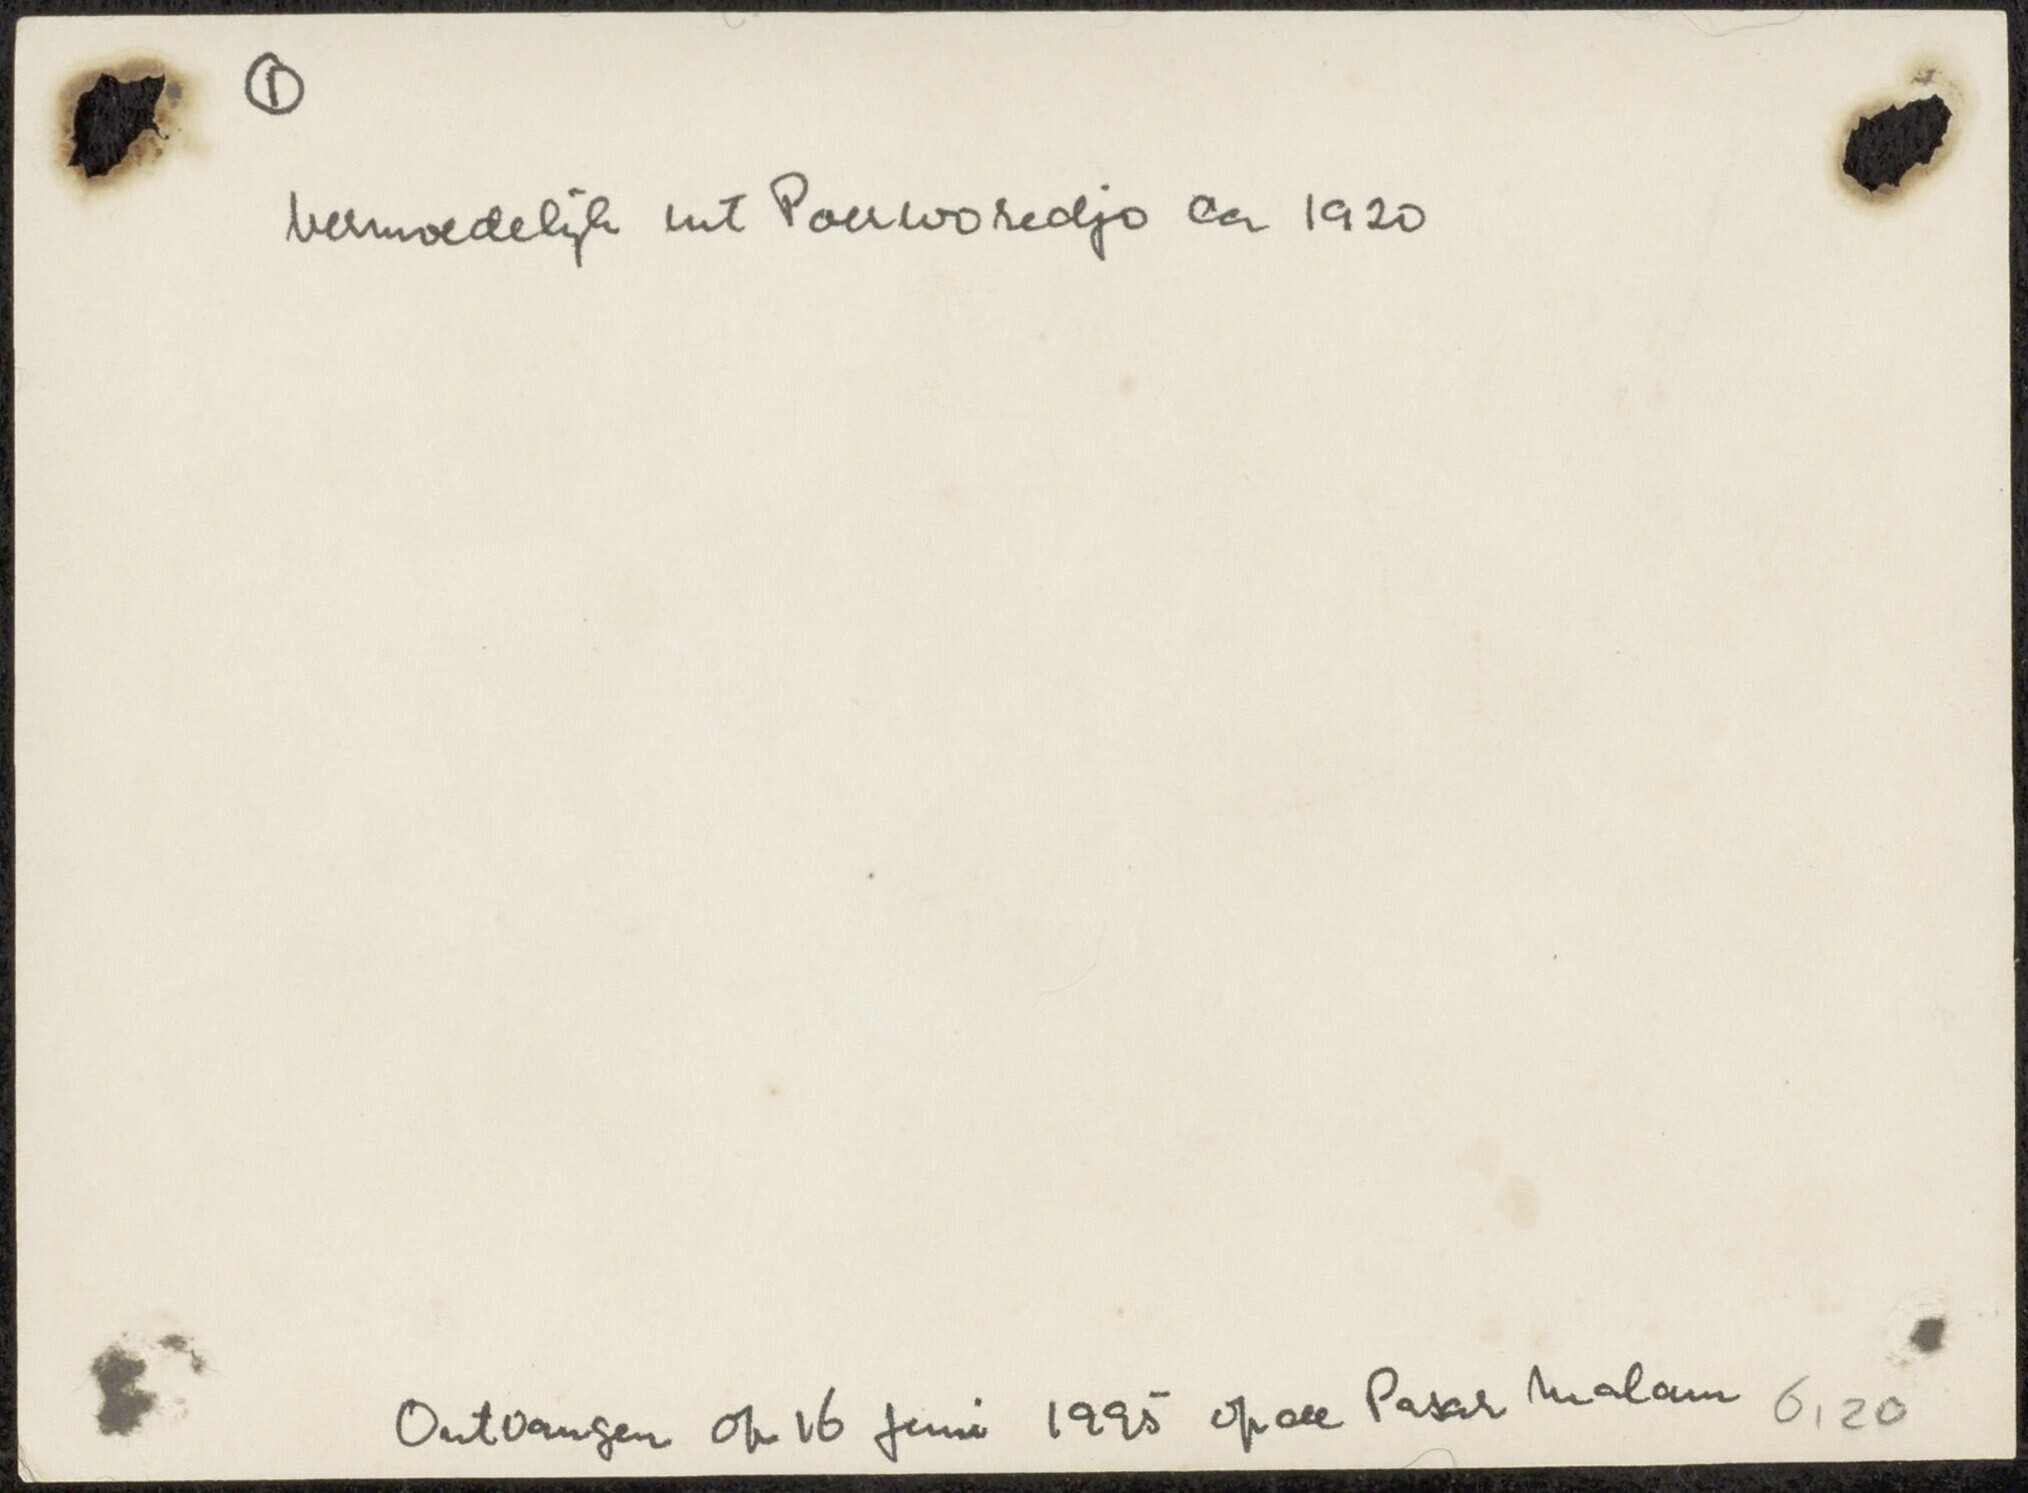 ①
Vermoedelijk uit Poerworedjo ca 1920
Ontvangen op 16 juni 1995 op de Pasar Malam 6,20